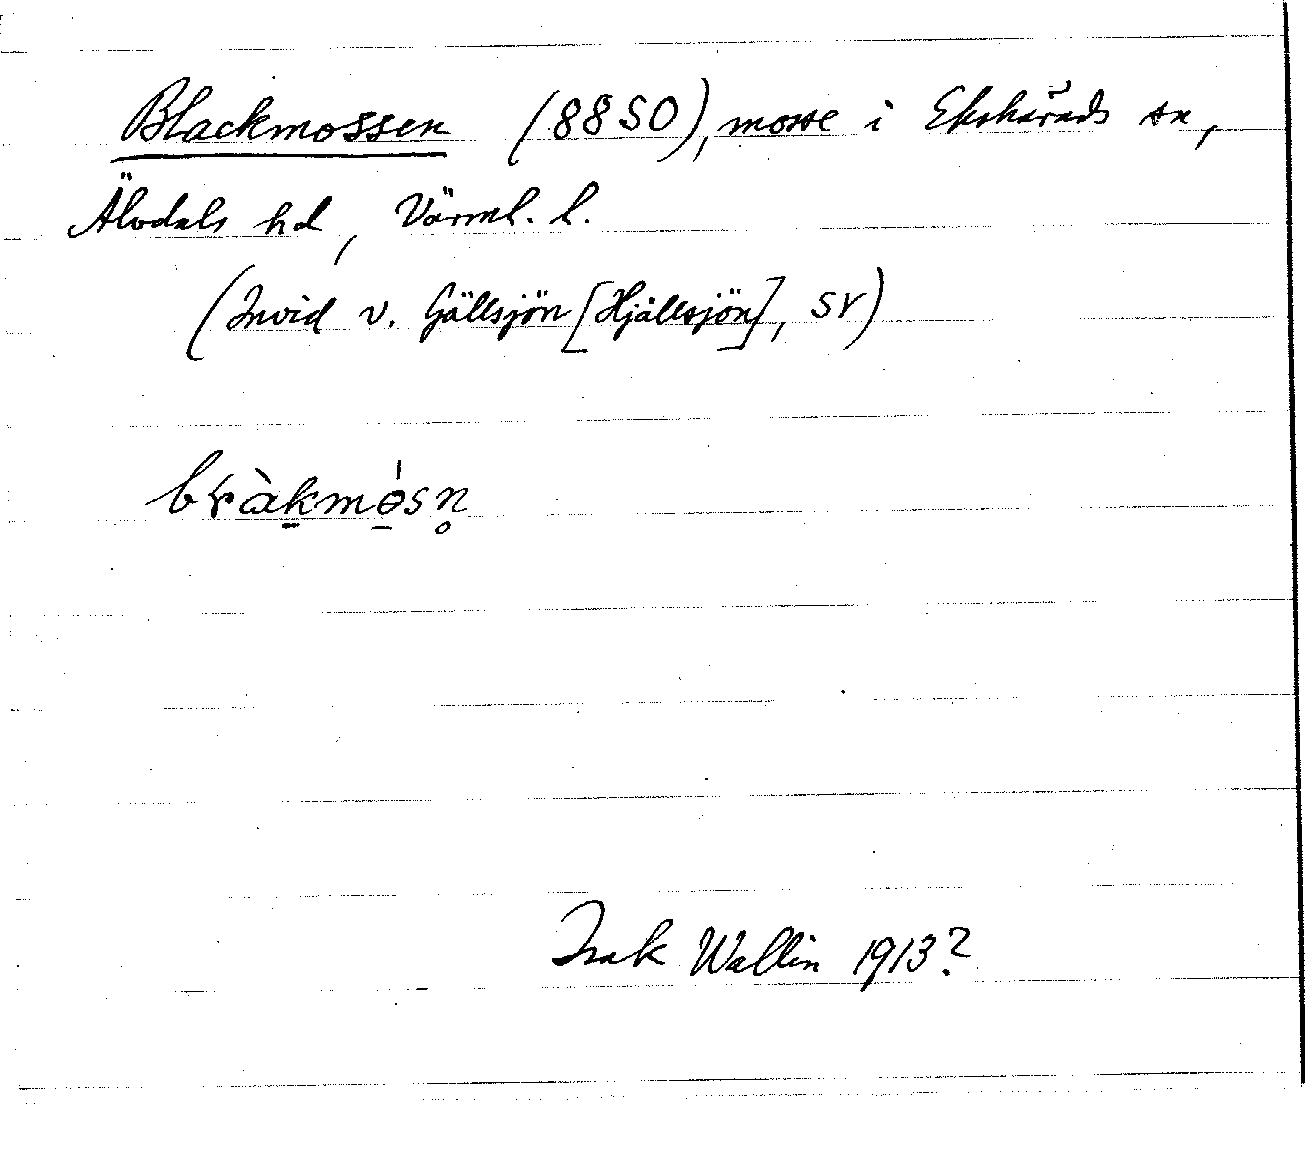 Blackmossen (88SO), mosse i Ekshärads sn,
Älvdals hd, Värml. l.
(Invid v. Gällsjön [Hjällsjön], SV)
bɽàk̠mo̠̍sn̥
Isak Wallin 1913?